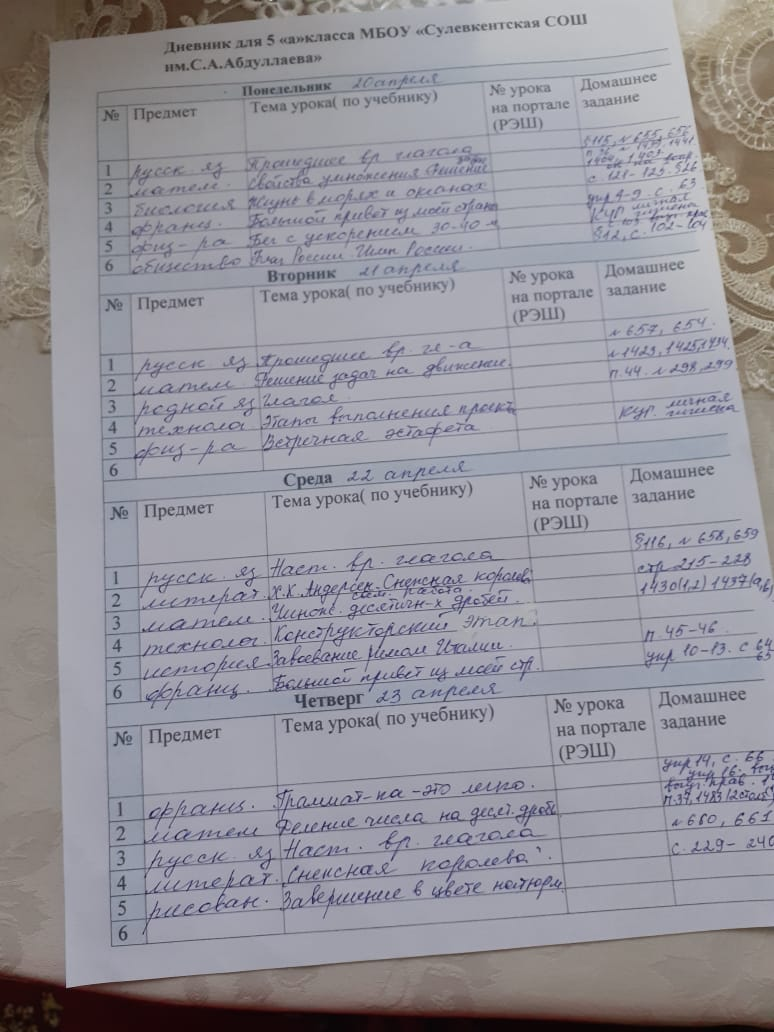 Дневник для 5 «а»класса МБОУ «Сулевкентская СОШ
им.С.А.Абдуллаева»
Понедельник 20 апреля
№ Предмет Тема урока( по учебнику) № урока на портале (РЭШ) Домашнее задание
1 русск. яз Прошедшее вр. глагола §115, № 655, 656
2 матем. Свойства умножения Решение задач
3 биология Жизнь в морях и океанах с. 121-123.
4 франц. Большой привет из моей страны упр 4-9. с. 63
5 физ-ра Бег с ускорением 30-40 м Кур. личная гигиена
6 общество Флаг России. Гимн России. §12, с. 102-104
Вторник 21 апреля
№ Предмет Тема урока( по учебнику) № урока на портале (РЭШ) Домашнее задание
1 русск. яз Прошедшее вр. гл-а № 657, 654.
2 матем. Решение задач на движение. №1423, 1425, 1434.
3 родной яз Глагол. п.44. № 298, 299
4 технолог. Этапы выполнения проекта
5 физ-ра Встречная эстафета Кур. личная гигиена
6
Среда 22 апреля
№ Предмет Тема урока( по учебнику) № урока на портале (РЭШ) Домашнее задание
1 русск. яз Наст. вр. глагола §116, № 658, 659
2 литерат. Х.К. Андерсен. Снежная королева стр 215-228
3 матем. Умнож. десятичн-х дробей. 1430(1,2) 1437(а,б)
4 технолог. Конструкторский этап.
5 история. Завоевание Римом Италии. п. 45-46.
6 франц. Большой привет из моей стр. упр 10-13. с 64 65
Четверг 23 апреля
№ Предмет Тема урока( по учебнику) № урока на портале (РЭШ) Домашнее задание
1 франц. Граммат-ка-это легко. упр 14, с. 66 упр 16.
2 матем Деление числа на десят. дробь п.37, 1483
3 русск. яз Наст. вр. глагола № 660, 661
4 литерат. Снежная королева. с. 229- 240
5 рисован. Завершение в цвете натюрм.
6